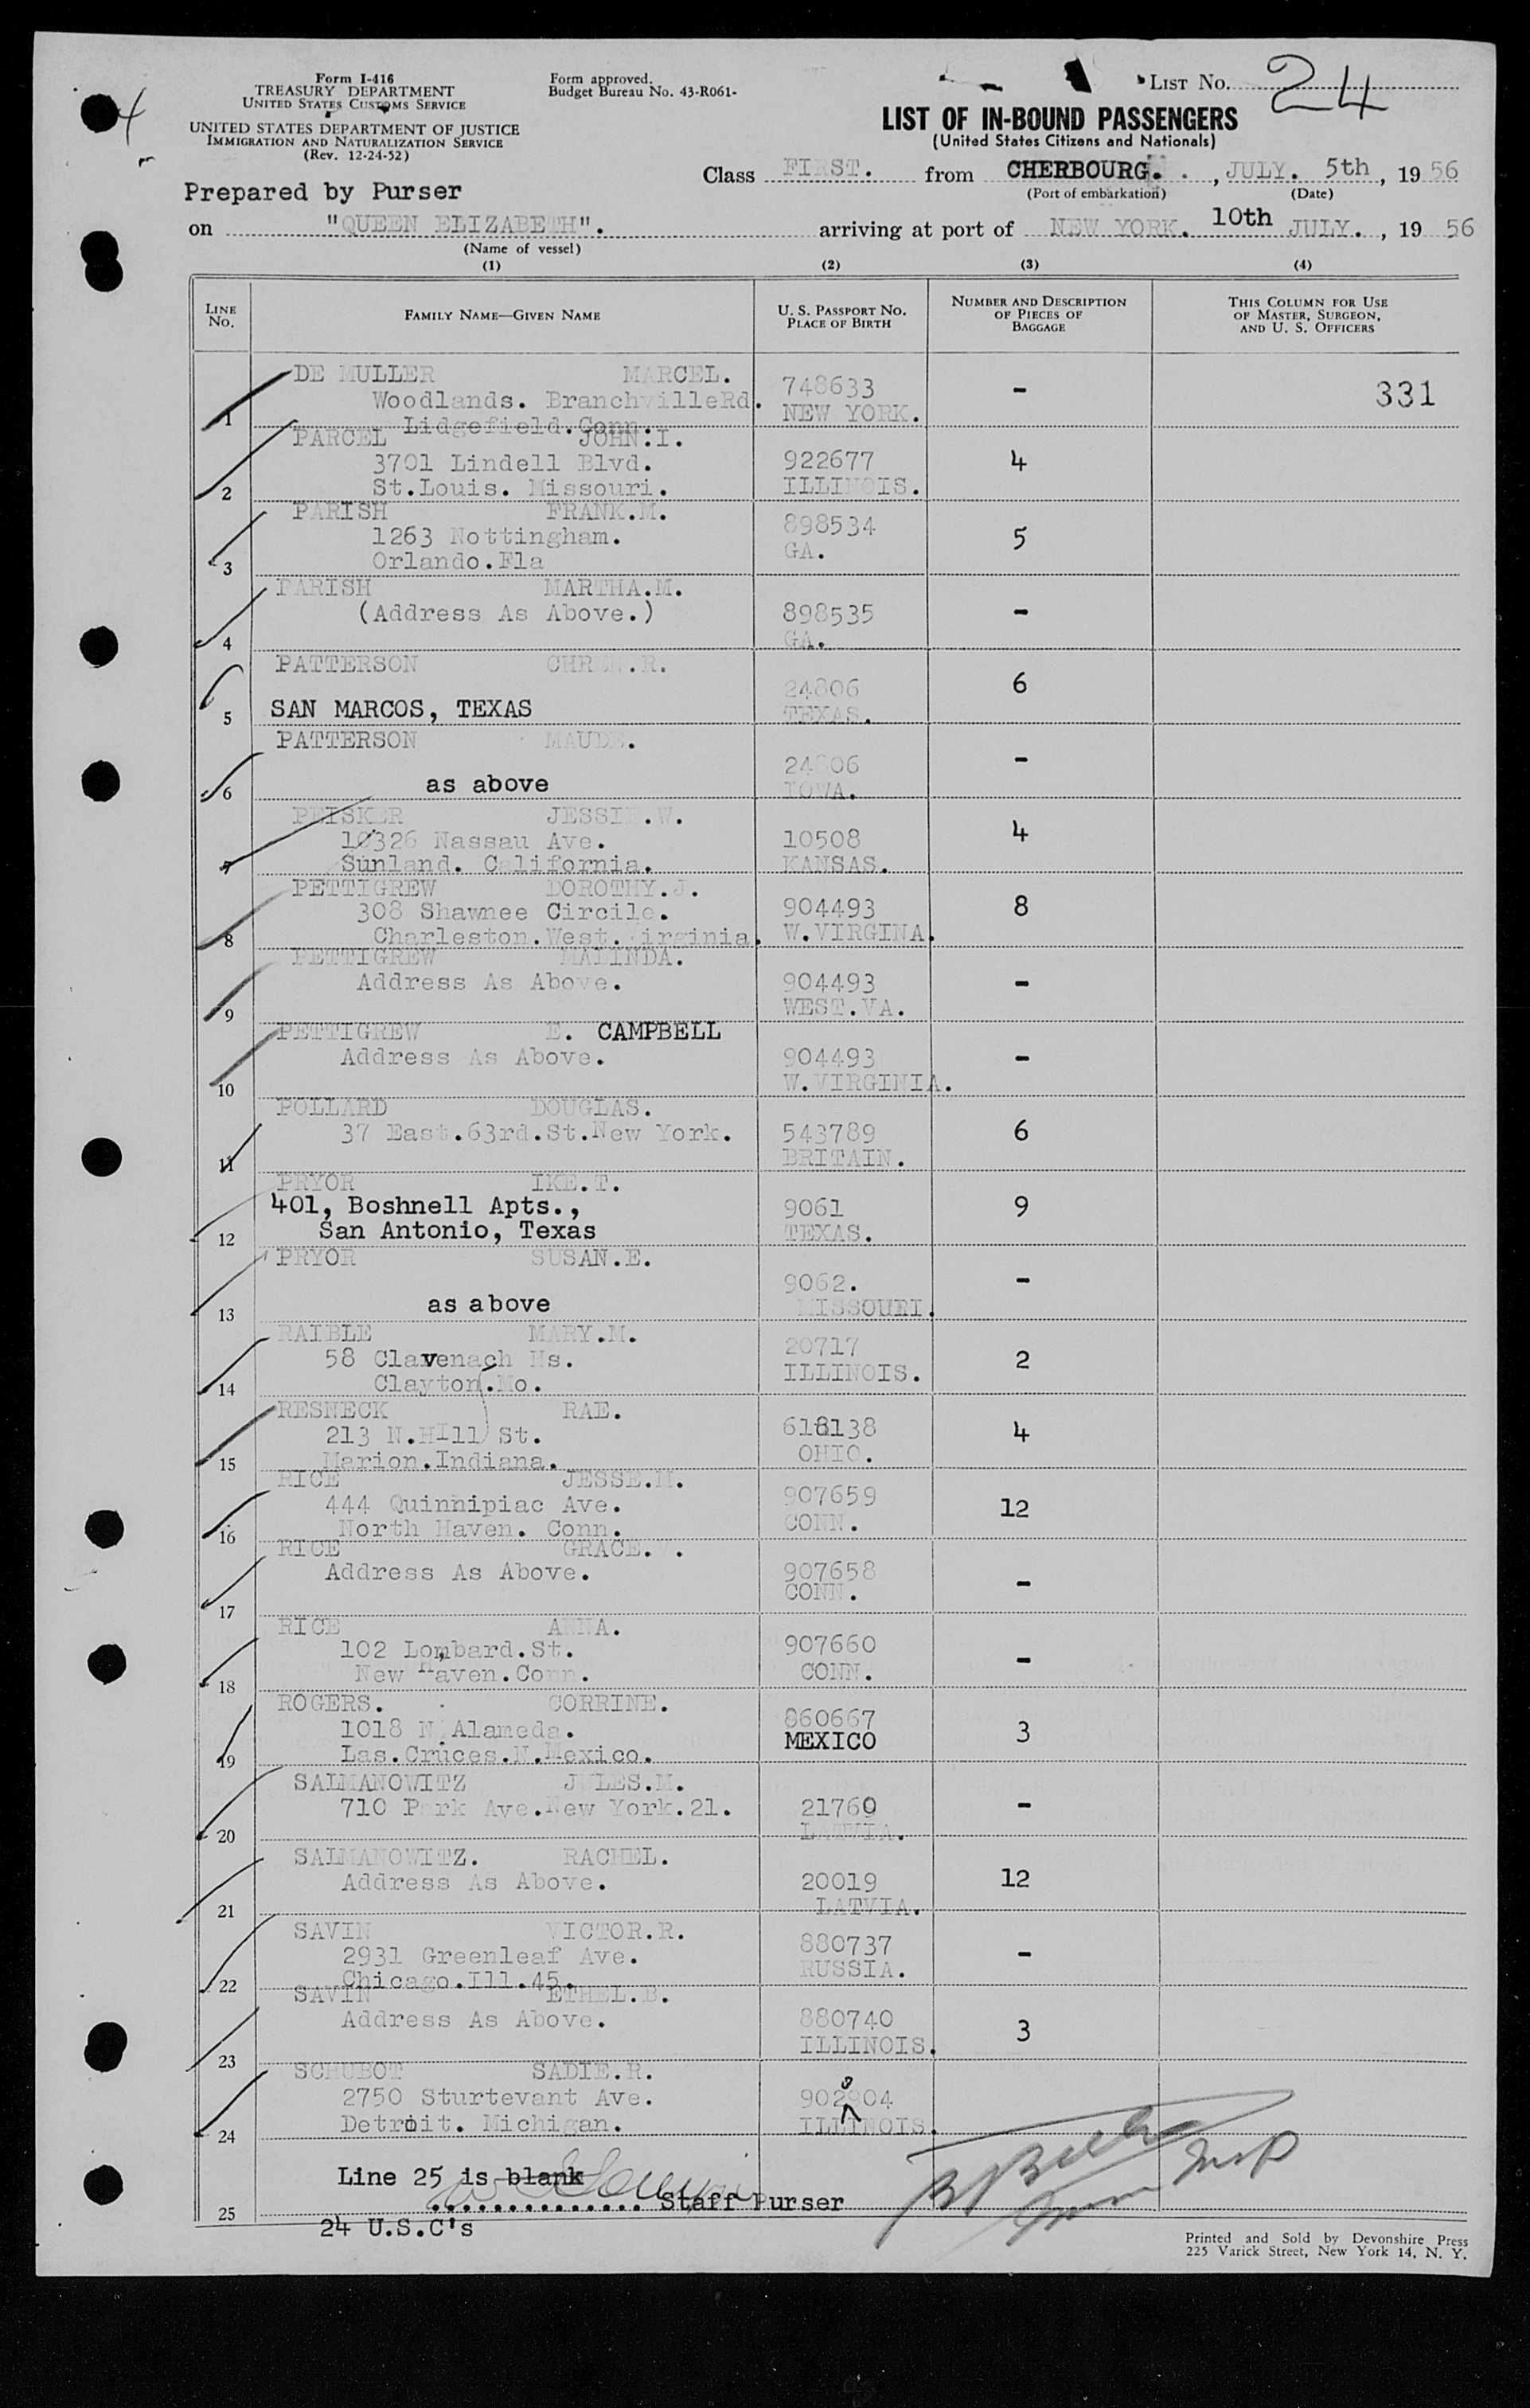 Form I-416
TREASURY DEPARTMENT
UNITED STATES CUSTOMS SERVICE
UNITED STATES DEPARTMENT OF JUSTICE
IMMIGRATION AND NATURALIZATION SERVICE
(Rev. 12-24-52)
Form approved.
Budget Bureau No. 43-R061-
LIST No. 24
LIST OF IN-BOUND PASSENGERS
(United States Citizens and Nationals)
Class FIRST. from CHERBOURG. , JULY. 5th, 1956
(Port of embarkation) (Date)
Prepared by Purser
on "QUEEN ELIZABETH". arriving at port of NEW YORK. 10th JULY. , 1956
(Name of vessel)
(1) (2) (3) (4)
LINE No. FAMILY NAME—GIVEN NAME U. S. PASSPORT No. PLACE OF BIRTH NUMBER AND DESCRIPTION OF PIECES OF BAGGAGE THIS COLUMN FOR USE OF MASTER, SURGEON, AND U. S. OFFICERS
DE MULLER MARCEL.
Woodlands. BranchvilleRd. 748633 - 331
1 Lidgefield.Conn. NEW YORK.
PARCEL JOHN.I.
3701 Lindell Blvd. 922677 4
2 St.Louis. Missouri. ILLINOIS.
PARISH FRANK.M.
1263 Nottingham. 898534 5
3 Orlando.Fla GA.
PARISH MARTHA.M.
(Address As Above.) 898535 -
4 GA.
PATTERSON .R.
24806 6
5 SAN MARCOS, TEXAS TEXAS.
PATTERSON MAUDE.
24806 -
6 as above IOWA.
PEISKER JESSIE.W.
10326 Nassau Ave. 10508 4
7 Sunland. California. KANSAS.
PETTIGREW DOROTHY.J.
308 Shawnee Circile. 904493 8
8 Charleston.West.Virginia. W.VIRGINA.
PETTIGREW MALINDA.
Address As Above. 904493 -
9 WEST.VA.
PETTIGREW E. CAMPBELL
Address As Above. 904493 -
10 W.VIRGINIA.
POLLARD DOUGLAS.
37 East.63rd.St.New York. 543789 6
11 BRITAIN.
PRYOR IKE.T.
401, Boshnell Apts., 9061 9
12 San Antonio, Texas TEXAS.
PRYOR SUSAN.E.
9062. -
13 as above MISSOURI.
RAIBLE MARY.M.
58 Clavenach Hs. 20717 2
14 Clayton.Mo. ILLINOIS.
RESNECK RAE.
213 N.HIll St. 618138 4
15 Marion.Indiana. OHIO.
RICE JESSE.M.
444 Quinnipiac Ave. 907659 12
16 North Haven. Conn. CONN.
RICE GRACE.V.
Address As Above. 907658 -
17 CONN.
RICE ANNA.
102 Lombard.St. 907660 -
18 New Haven.Conn. CONN.
ROGERS. CORRINE.
1018 N.Alameda. 860667 3
19 Las.Cruces.N.Mexico. MEXICO
SALMANOWITZ JULES.M.
710 Park Ave.New York.21. 21760 -
20 LATVIA.
SALMANOWITZ. RACHEL.
Address As Above. 20019 12
21 LATVIA.
SAVIN VICTOR.R.
2931 Greenleaf Ave. 880737 -
22 Chicago.Ill.45. RUSSIA.
SAVIN ETHEL.B.
Address As Above. 880740 3
23 ILLINOIS.
SCHUBOT SADIE.R.
2750 Sturtevant Ave. 902904
24 Detroit. Michigan. ILLINOIS.
Line 25 is blank
25 .............. Staff Purser
24 U.S.C's
Printed and Sold by Devonshire Press
225 Varick Street, New York 14, N. Y.